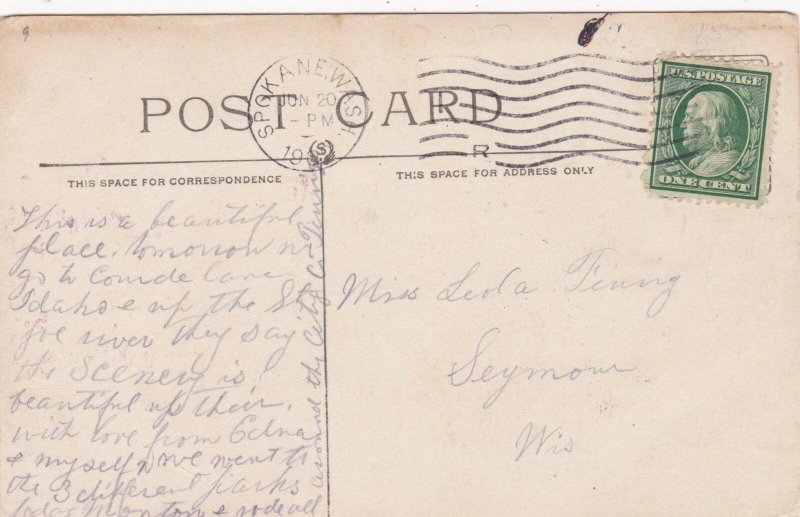 9
SPOKANE, WASH.
JUN 20
- PM
19
POST CARD
U.S. POSTAGE
ONE CENT
R
S
THIS SPACE FOR CORRESPONDENCE
THIS SPACE FOR ADDRESS ONLY
This is a beautiful
place. tomorrow we
go to Courde lane
Idaho & up the St
Joe river they say
the scenery is
beautiful up their.
with love from Edna
& myself we went to
the 3 different parks
today & rode all
around the City
Miss Leola
Seymour
Wis